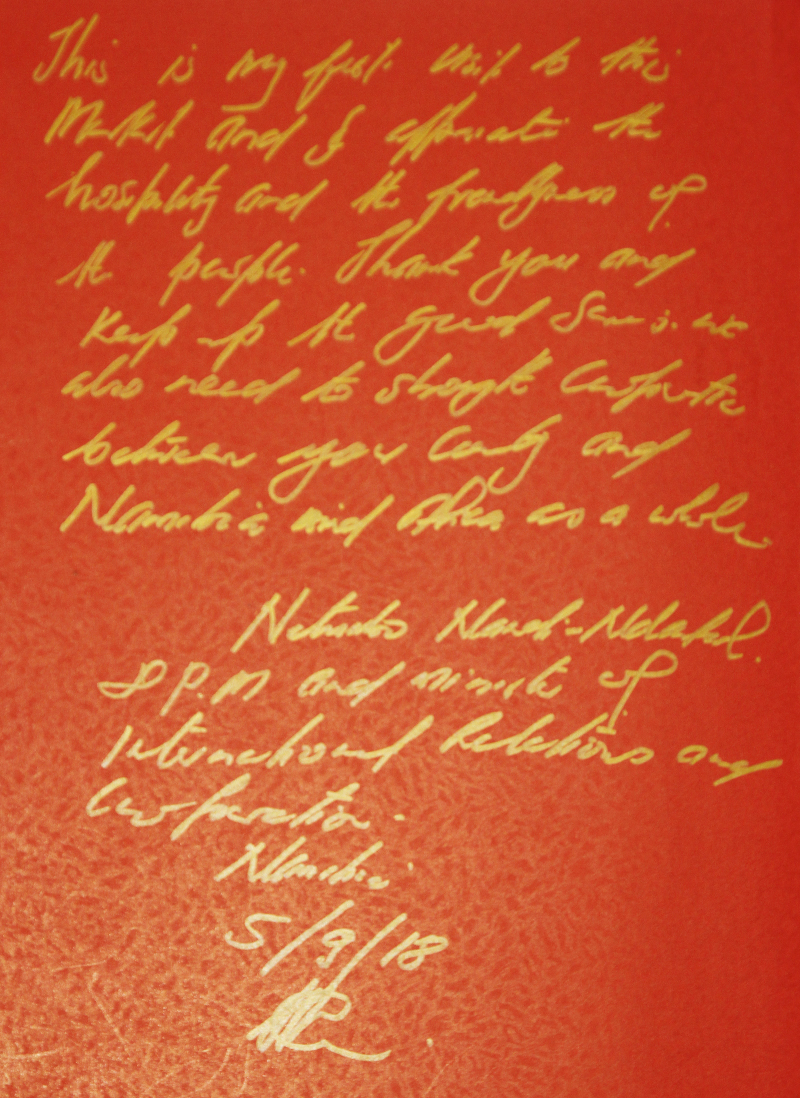 This is my first visit to this
Market and I appreciate the
hospitality and the friendliness of
the people. Thank you and
Keep up the good we
also need to cooperation
between your county and
Namibia and Africa as a whole
Netumbo Nandi-Ndaitwah.
D P.M and Minister of
International Relations and
Cooperation.
Namibia.
5/9/18